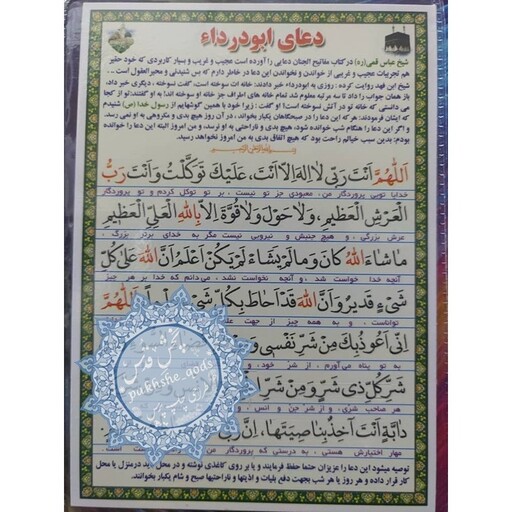 دعای ابودرداء
شیخ عباس قمی(ره) در کتاب مفاتیح الجنان دعایی را آورده است عجیب و غریب و بسیار کاربردی که خود حقیر
هم تجربیات عجیب و غریبی از خواندن و نخواندن این دعا در خاطر دارم که بس شنیدنی و محیرالعقول است ..،
شیخ ابن فهد روایت کرده : روزی به ابودرداء خبر دادند: خانه ات سوخته است، گفت: نسوخته است، دیگری خبر داد
باز همان جواب را داد تا سه مرتبه معلوم شد تمام خانه های اطراف جز خانه او سوخته اند! به او گفتند: از کجا
می دانستی که خانه تو در آتش نسوخته است! او گفت : زیرا خود با همین گوشهایم از رسول خدا (ص) شنیدم
که ایشان فرمودند: هر که این دعا را در صبحگاهان یکبار بخواند، در آن روز هیچ بدی و مکروهی به او نمی رسد.
و اگر این دعا را هنگام شب خوانده شود، هیچ بدی و ناراحتی به او نرسد، و من امروز البته این دعا را خوانده
بودم: بدین سبب خیالم راحت بود که هیچ اتفاق بدی به من امروز نخواهد رسید.
اَللّهُمَّ اَنْتَ رَبّی لا اِلهَ اِلاّ اَنْتَ، عَلَیْکَ تَوَکَّلْتُ وَ اَنْتَ رَبُّ
خدایا تویی پروردگار من، معبودی جز تو نیست، بر تو توکل کردم و تو پروردگار
الْعَرْشِ الْعَظیمِ، وَ لا حَوْلَ وَ لا قُوَّةَ اِلاّ بِاللهِ الْعَلِیِّ الْعَظیمِ
عرش بزرگی، و هیچ جنبش و نیرویی نیست مگر به خدای برتر بزرگ،
ما شاءَ اللهُ کانَ وَ ما لَمْ یَشَاءْ لَمْ یَکُنْ اَعْلَمُ اَنَّ اللهَ عَلی کُلِّ
آنچه خدا خواست شد، و آنچه نخواست نشد، می دانم که خدا بر هر چیز
شَیْءٍ قَدیرٌ وَ اَنَّ اللهَ قَدْ اَحاطَ بِکُلِّ شَیْءٍ اَللّهُمَّ
تواناست، و به همه چیز از جهت
اِنّی اَعُوذُ بِکَ مِنْ شَرِّ نَفْسی وَ
به تو پناه می آورم، از شر خود، و
شَرِّ کُلِّ ذی شَرٍّ وَ مِنْ شَرِّ
هر صاحب شری، و از شر جن و انس، و
دابَّةٍ اَنْتَ اخِذٌ بِناصِیَتِها، اِنَّ
مهار اختیارش هستی، به درستی که پروردگار
توصیه میشود این دعا را عزیزان حتما حفظ فرمایند و یا بر روی کاغذی نوشته و در محل دید درمنزل یا محل
کار قرار داده و هر روز یا هر شب بجهت دفع بلیات و اذیتها و ناراحتیها صبح و شام یکبار بخوانند.
پخش قدس
pakhshe_qods